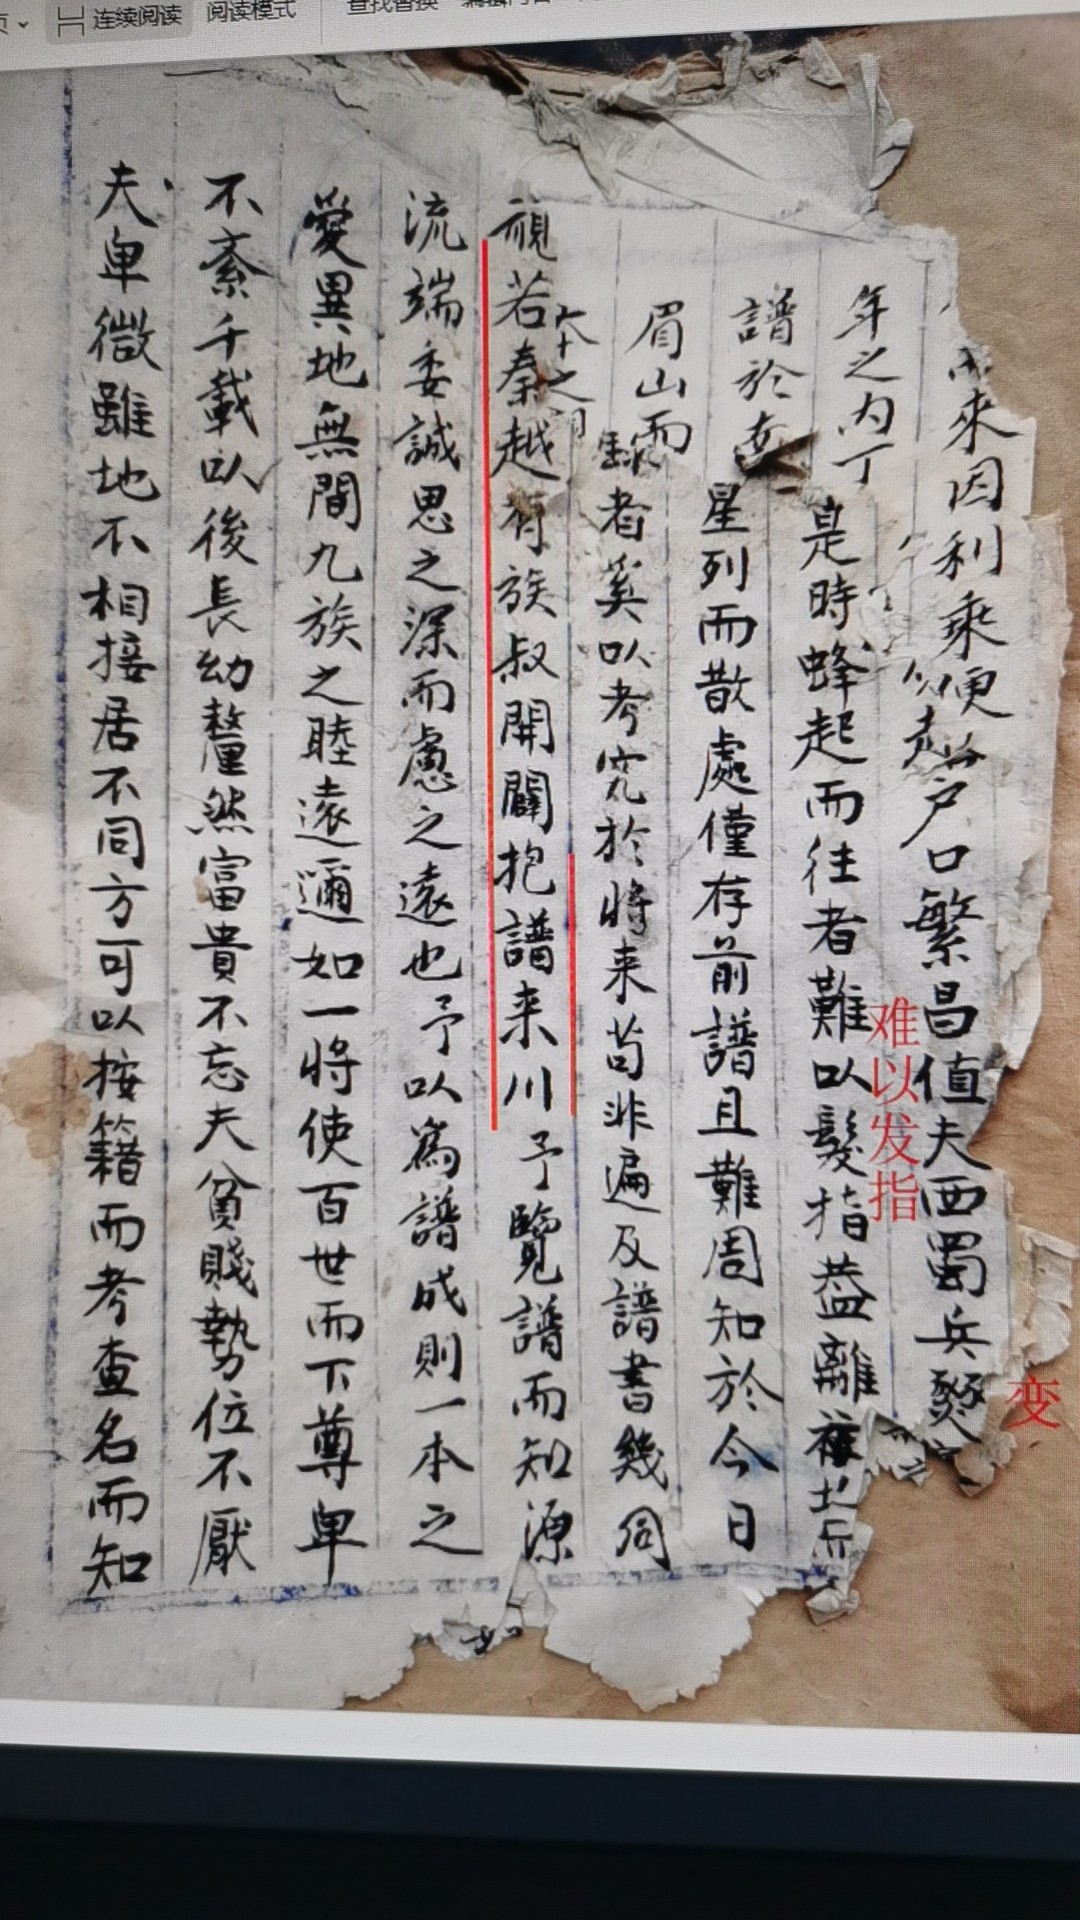 连续阅读 阅读模式 查找替换
来因利乘便
户口繁昌值夫西蜀兵燹
变
年之内丁
是時蜂起而往者難以髮指蓋離
难以发指
譜於
星列而散處僅存前譜且難周知於今日
眉山而
錄者奚以考究於將来苟非遍及譜書幾同
本之
視若秦越有族叔開闢抱譜来川予覽譜而知源
流端委誠思之深而慮之遠也予以為譜成則一本之
愛異地無間九族之睦遠邇如一將使百世而下尊卑
不紊千載以後長幼釐然富貴不忘夫貧賤勢位不厭
夫卑微雖地不相接居不同方可以按籍而考查名而知